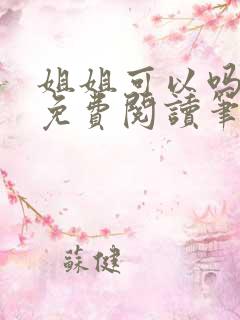 姐姐可以吗
免費閱讀筆
蘇健